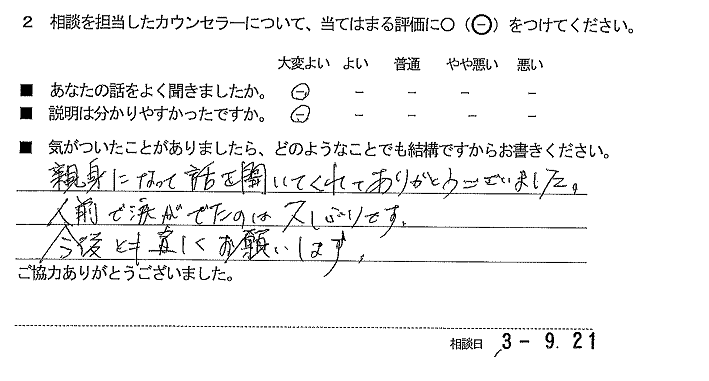 2 相談を担当したカウンセラーについて、当てはまる評価に○（㊀）をつけてください。
大変よい よい 普通 やや悪い 悪い
■ あなたの話をよく聞きましたか。 ㊀ － － － －
■ 説明は分かりやすかったですか。 ㊀ － － － －
■ 気がついたことがありましたら、どのようなことでも結構ですからお書きください。
親身になって話を聞いてくれてありがとうございました。
人前で涙がでたのは久しぶりです。
今後とも宜しくお願いします。
ご協力ありがとうございました。
相談日 3－9.21